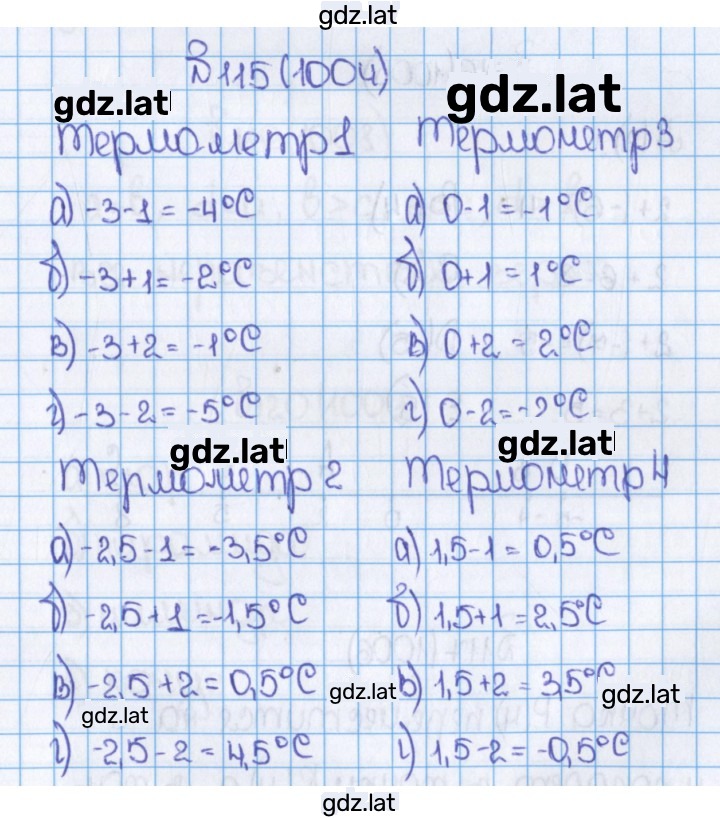 gdz.lat
№115(1004)
gdz.lat
gdz.lat
Термометр 1
а) -3-1 = -4°C
б) -3+1 = -2°C
в) -3+2 = -1°C
г) -3-2 = -5°C
gdz.lat
Термометр 2
а) -2,5-1 = -3,5°C
б) -2,5+1 = -1,5°C
в) -2,5+2 = 0,5°C
gdz.lat
г) -2,5-2 = 4,5°C
Термометр 3
а) 0-1 = -1°C
б) 0+1 = 1°C
в) 0+2 = 2°C
г) 0-2 = -2°C
gdz.lat
Термометр 4
а) 1,5-1 = 0,5°C
б) 1,5+1 = 2,5°C
gdz.lat
в) 1,5+2 = 3,5°C
gdz.lat
г) 1,5-2 = -0,5°C
gdz.lat